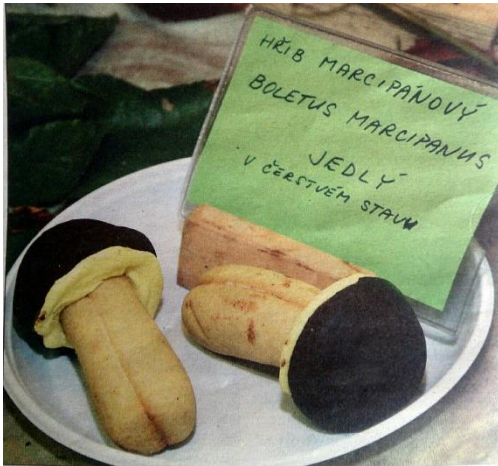 HŘIB MARCIPÁNOVÝ
BOLETUS MARCIPANUS
JEDLÝ
V ČERSTVÉM STAVU